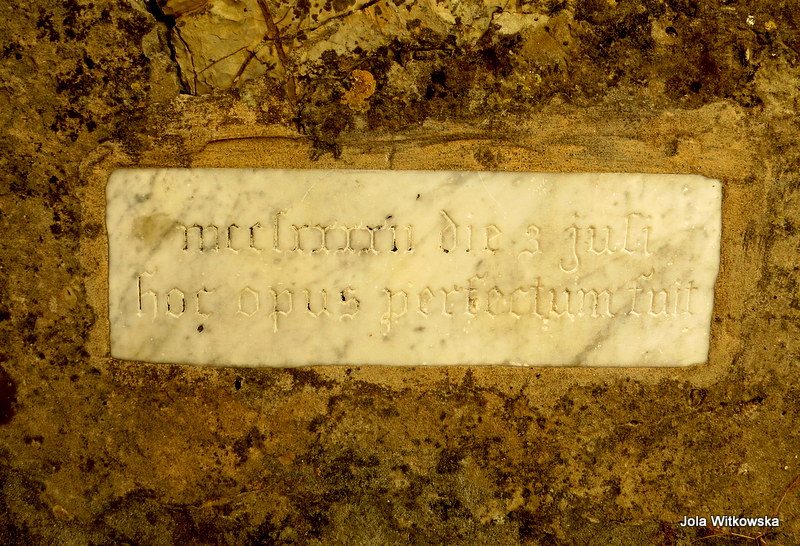 mcclxxxxii die 3 juli
hoc opus perfectum fuit
Jola Witkowska